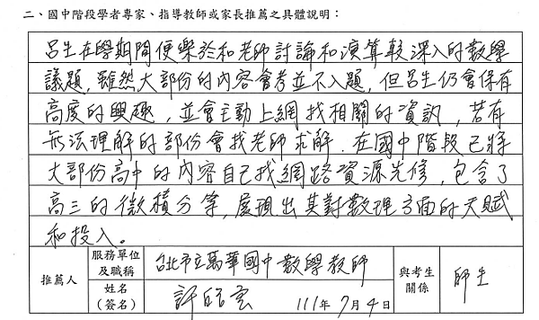 二、國中階段學者專家、指導教師或家長推薦之具體說明：
呂生在學期間便樂於和老師討論和演算較深入的數學
議題，雖然大部份的內容會考並不入題，但呂生仍會保有
高度的興趣，並會主動上網找相關的資訊，若有
無法理解的部份會找老師求解。在國中階段已將
大部份高中的內容自己找網路資源先修，包含了
高三的微積分等，展現出其對數理方面的天賦
和投入。
推薦人 服務單位及職稱 台北市立萬華國中數學教師 與考生關係 師生
姓名（簽名） 許 111年7月4日